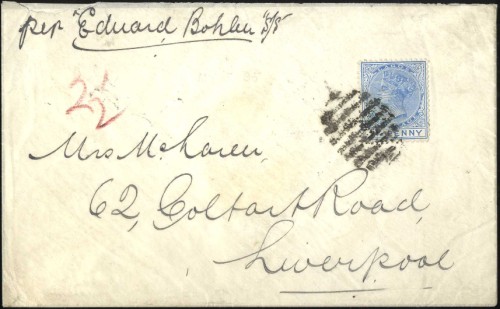 per "Eduard Bohlen" S/S
2½
PENNY
Mrs McLaren,
62, Coltart Road,
Liverpool